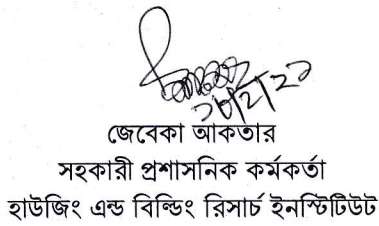 জেবেকা আকতার
সহকারী প্রশাসনিক কর্মকর্তা
হাউজিং এন্ড বিল্ডিং রিসার্চ ইনস্টিটিউট